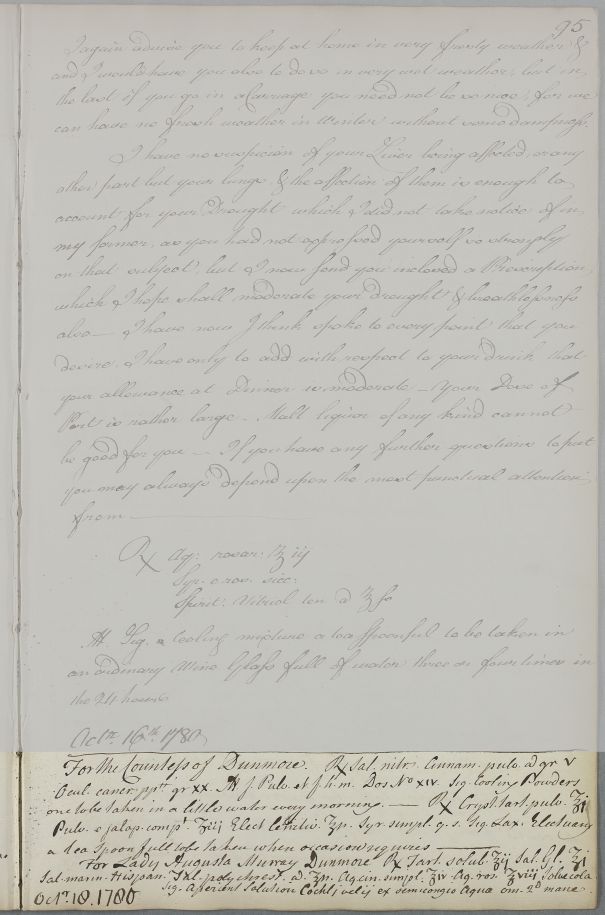 95
I again advise you to keep at home in very frosty weather &
and I would have you also to do so in very wet weather, but in
the last if you go in a Carriage you need not be so nice, for we
can have no fresh weather in Winter without some dampness.
I have no suspicion of your Liver being affected, or any
other part but your lungs, & the affection of them is enough to
account for your Drought which I did not take notice of in
my former, as you had not expressed yourself so strongly
on that subject, but I now send you inclosed a Prescription
which I hope shall moderate your drought & breathlessness
also — I have now I think spoke to every point that you
desire, I have only to add with respect to your drink that
your allowance at Dinner is moderate — Your Dose of
Port is rather large. Malt liquor of any kind cannot
be good for you — If you have any further questions to put
you may always depend upon the most punctual attention
from
℞ Aq: rosar: ℥ iij
Syr. e ros. sicc.
Spirit: Vitriol ten a ℥ ss
M. Sig. a Cooling mixture a tea spoonful to be taken in
an ordinary Wine Glass full of water three or four times in
the 24 hours
Octr. 16th. 1780
For the Countess of Dunmore. ℞ Sal. nitr. Cinnam. pulv. a gr V
Ocul. cancr. ppt. gr XX. M f. Pulv. et f. h. m. Dos No. XIV. Sig. Cooling Powders
one to be taken in a little water every morning. — ℞ Cryst. tart. pulv. ℥j
Pulv. e jalap. comp. ʒiij Elect lenitiv. ℥ss. Syr simpl. q. s. Sig. Lax. Electuary
a tea Spoon full to be taken when occasion requires
For Lady Augusta Murray Dunmore ℞ Tart. solub. ℥ij Sal. Gl. ℥j
Sal. marin. Hispan. Sal. polychrest. a. ℥ss. Aq. cin. simpl. ℥iv Aq. ros. ℥viij solve cola
Sig. Aperient Solution Cochl. j vel ij ex semicongio Aqua om. 2do. mane.
Octr. 18. 1780